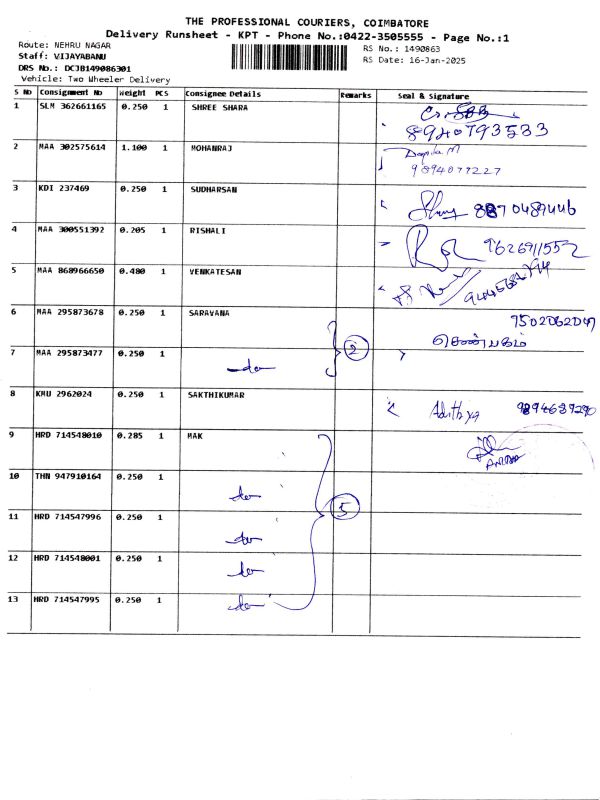 THE PROFESSIONAL COURIERS, COIMBATORE
Delivery Runsheet - KPT - Phone No.:0422-3505555 - Page No.:1
Route: NEHRU NAGAR
Staff: VIJAYABANU
DRS No.: DCJB149086301
Vehicle: Two Wheeler Delivery
RS No.: 1490863
RS Date: 16-Jan-2025
S No Consignment No Weight PCS Consignee Details Remarks Seal & Signature
1 SLM 362661165 0.250 1 SHREE SHARA
8940793533
2 MAA 302575614 1.100 1 MOHANRAJ Deepika M
9894077227
3 KDI 237469 0.250 1 SUDHARSAN 8870489446
4 MAA 300551392 0.205 1 RISHALI 9626911552
5 MAA 868966650 0.480 1 VENKATESAN
6 MAA 295873678 0.250 1 SARAVANA 7502062047
செண்பகம்
7 MAA 295873477 0.250 1 -do- 2
8 KMU 2962024 0.250 1 SAKTHIKUMAR Adithya 9894689290
9 HRD 714548010 0.285 1 MAK
10 THN 947910164 0.250 1 -do-
5
11 HRD 714547996 0.250 1 -do-
12 HRD 714548001 0.250 1 -do-
13 HRD 714547995 0.250 1 -do-